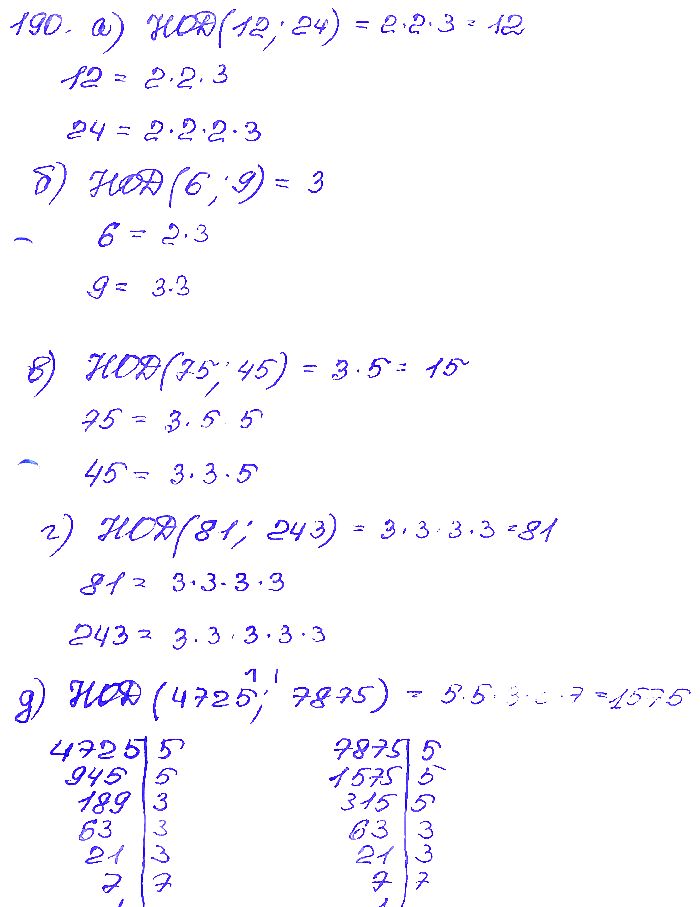 190. а) НОД(12; 24) = 2·2·3 = 12
12 = 2·2·3
24 = 2·2·2·3
б) НОД(6; 9) = 3
6 = 2·3
9 = 3·3
в) НОД(75; 45) = 3·5 = 15
75 = 3·5 5
45 = 3·3·5
г) НОД(81; 243) = 3·3·3·3 = 81
81 = 3·3·3·3
243 = 3·3·3·3·3
д) НОД(4725; 7875) = 5·5·3·3·7 = 1575
4725 | 5 7875 | 5
945 | 5 1575 | 5
189 | 3 315 | 5
63 | 3 63 | 3
21 | 3 21 | 3
7 | 7 7 | 7
1 1